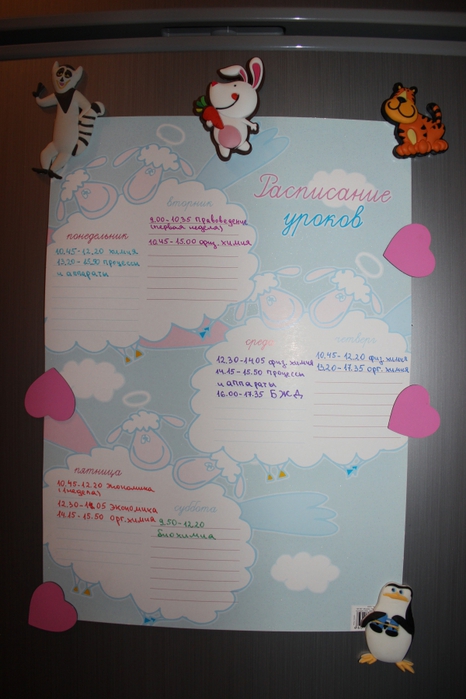 Расписание
уроков
понедельник
10.45-12.20 химия
и аппараты
вторник
9.00-10.35 Правоведение
(первая неделя)
10.45-15.00 физ. химия
среда
12.30-14.05 физ. химия
14.15-15.50 процессы
и аппараты
16.00-17.35 БЖД
четверг
10.45-12.20 физ. химия
13.20-17.35 орг. химия
пятница
10.45-12.20 экономика
1 (неделя)
12.30-14.05 экономика
14.15-15.50 орг. химия
суббота
9.50-12.20
биохимия